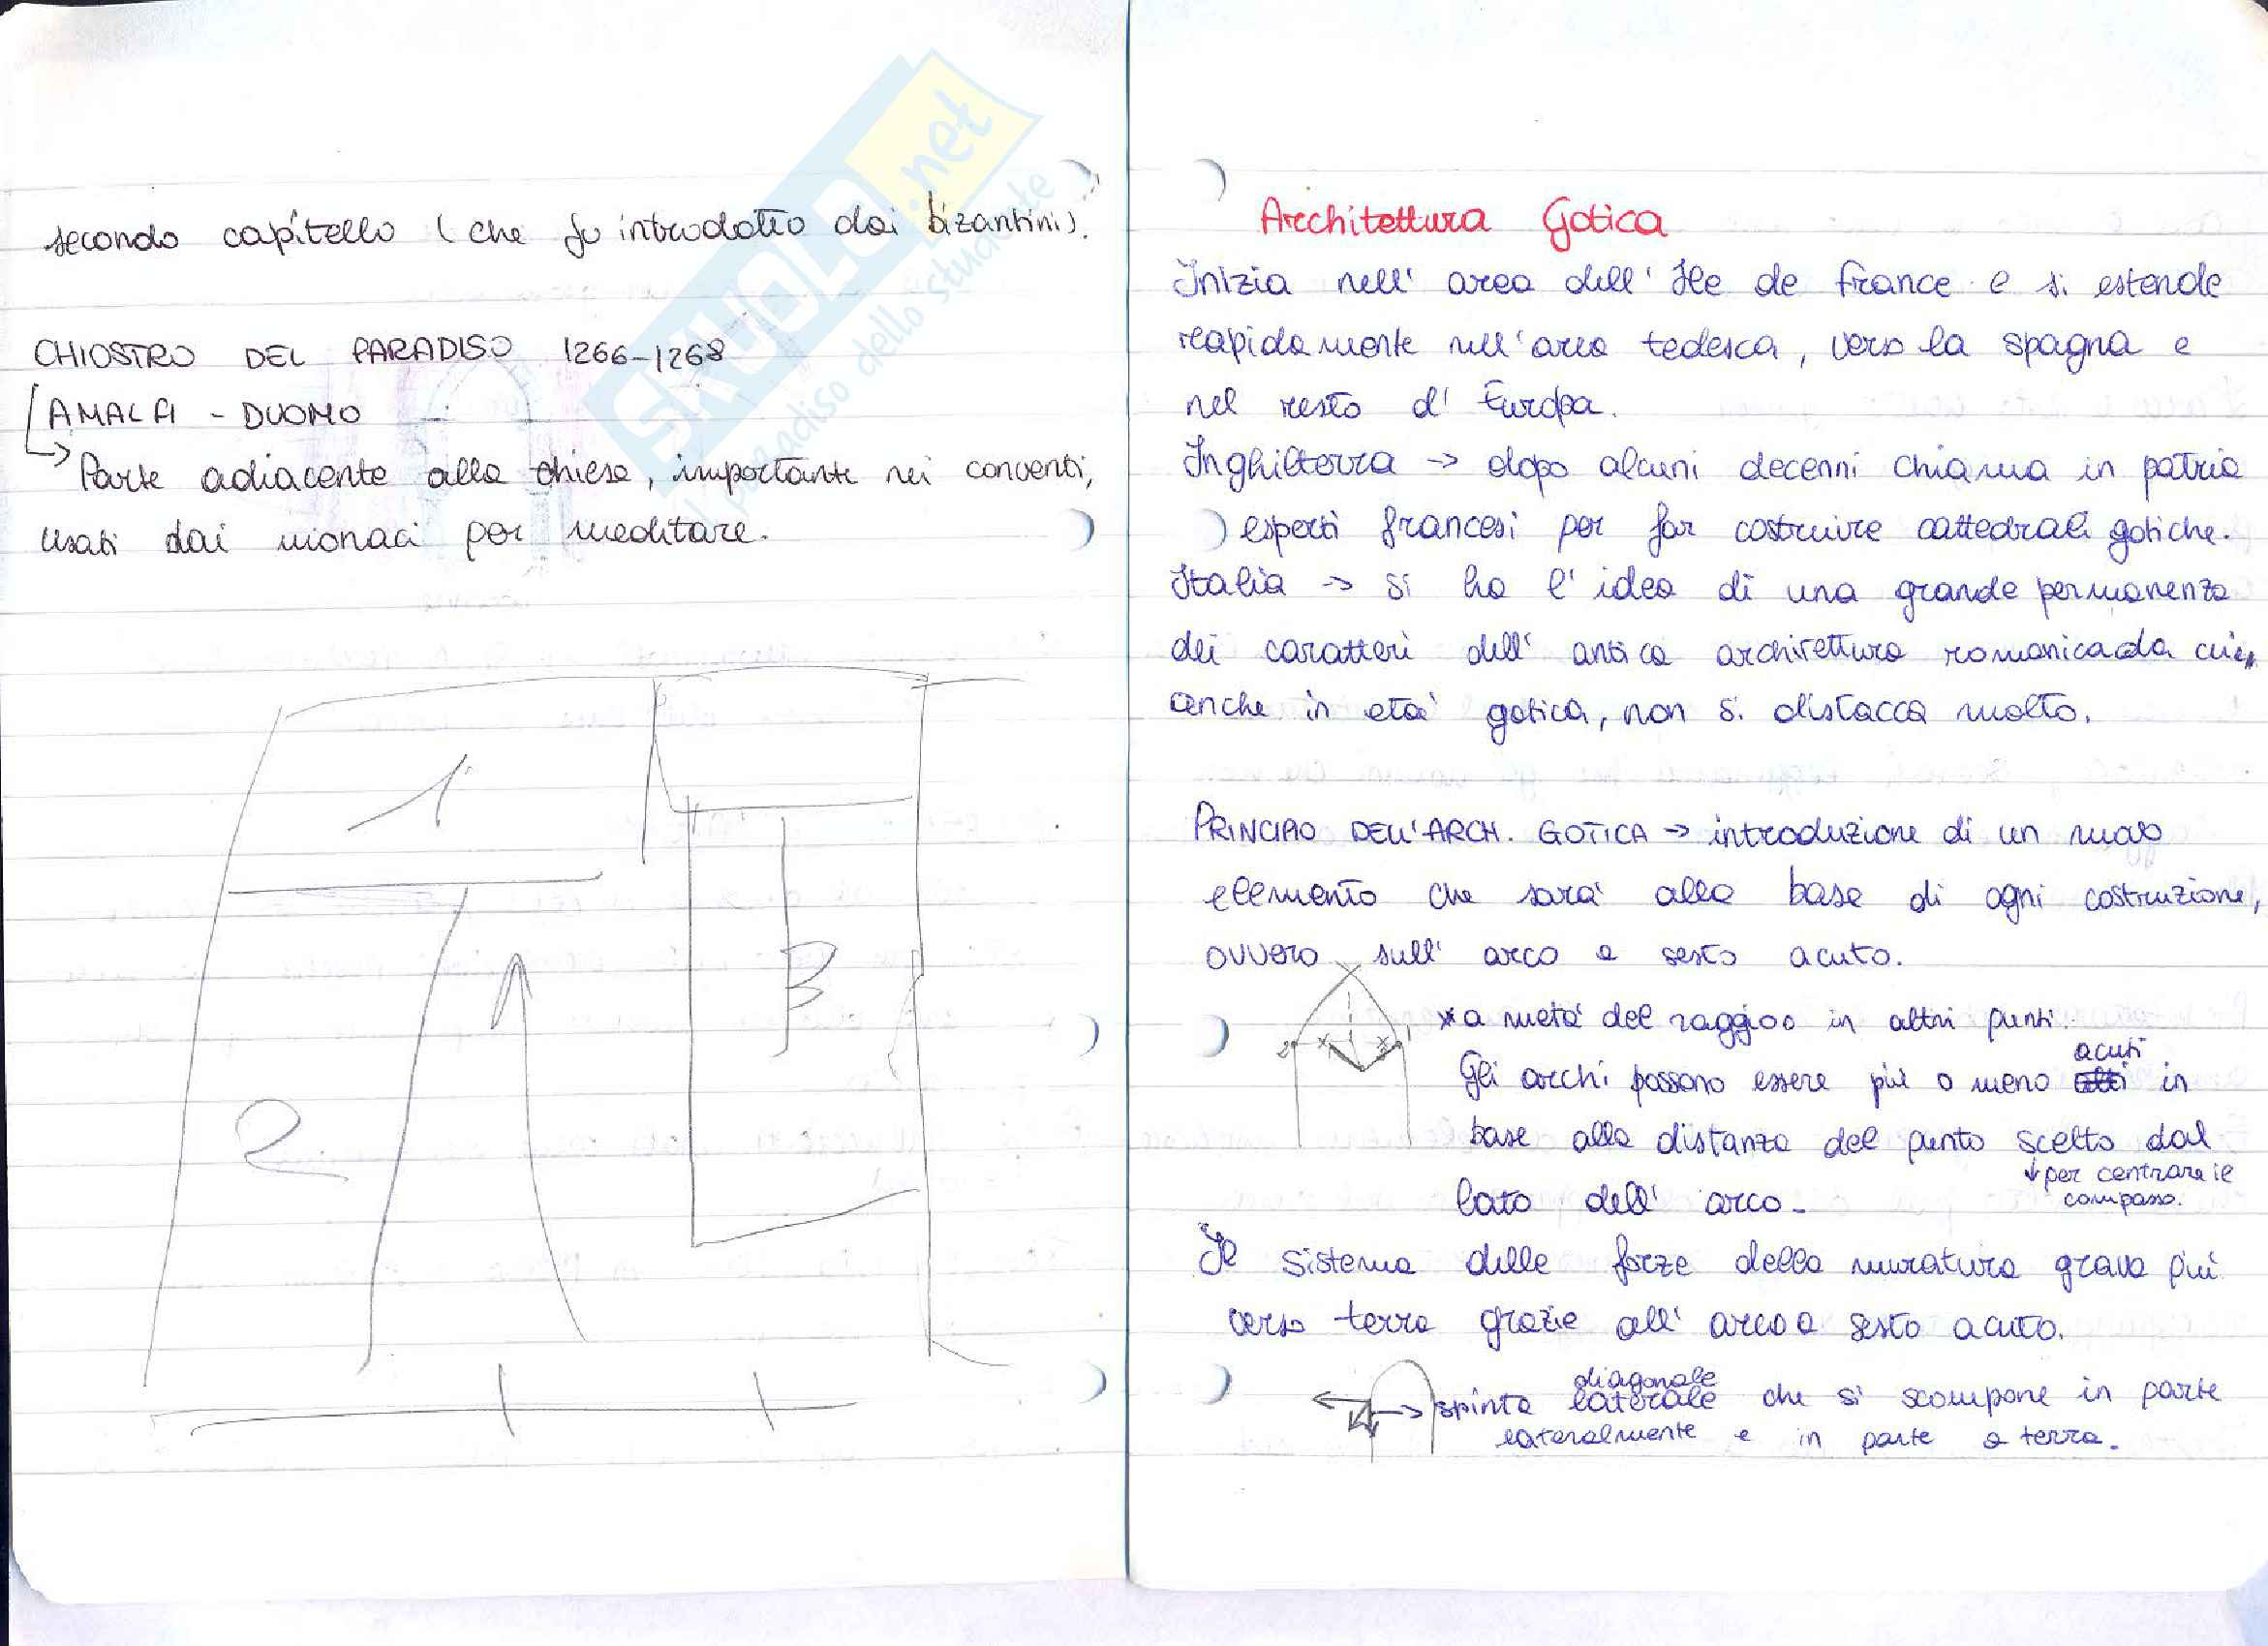 secondo capitello (che fu introdotto dai bizantini).
CHIOSTRO DEL PARADISO 1266-1268
AMALFI - DUOMO
Parte adiacente alla chiesa, importante nei conventi,
usati dai monaci per meditare.
1
2
3
SKUOLA.net
il paradiso dello studente
Architettura Gotica
Inizia nell' area dell' Ile de france e si estende
rapidamente nell'area tedesca, verso la spagna e
nel resto d' Europa.
Inghilterra → dopo alcuni decenni chiama in patria
esperti francesi per far costruire cattedrali gotiche.
Italia → si ha l' idea di una grande permanenza
dei caratteri dell' antica architettura romanica da cui,
anche in eta' gotica, non si distacca molto.
PRINCIPIO DELL'ARCH. GOTICA → introduzione di un nuovo
elemento che sara' alla base di ogni costruzione,
ovvero sull' arco a sesto acuto.
x a meta' del raggio o in altri punti.
2 1
acuti
Gli archi possono essere più o meno alti in
base alla distanza del punto scelto dal
↓ per centrare il
compasso.
lato dell' arco.
Il sistema delle forze della muratura grava più
verso terra grazie all' arco a sesto acuto.
diagonale
→ spinta laterale che si scompone in parte
lateralmente e in parte a terra.